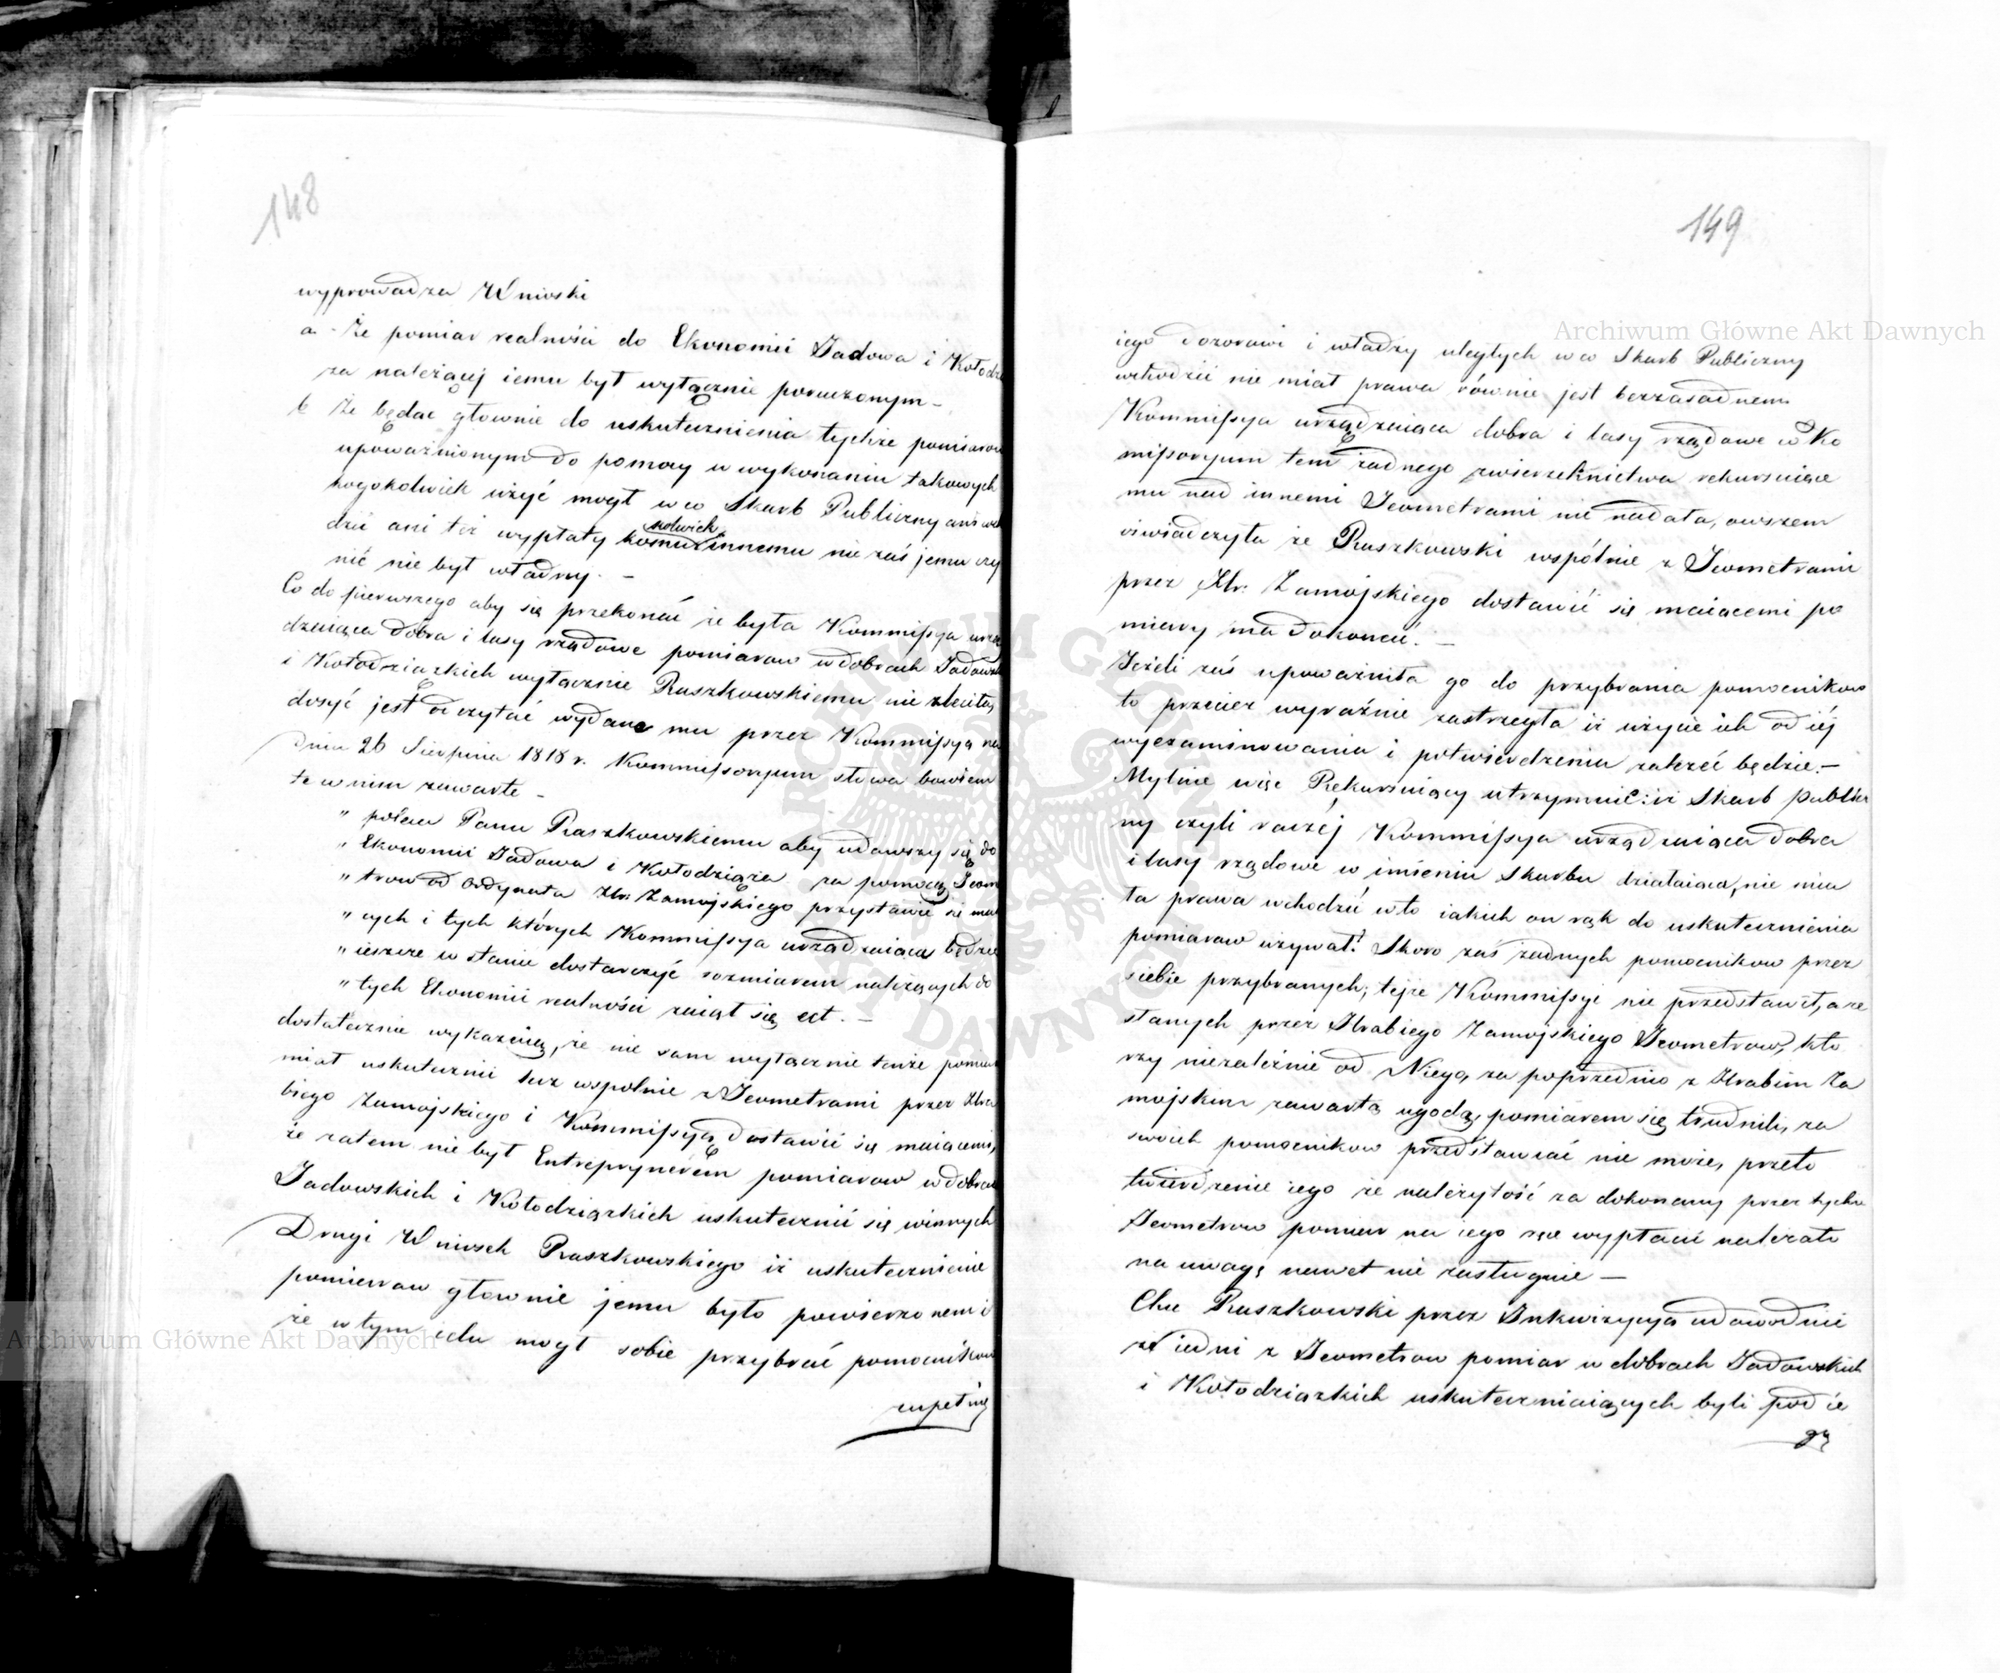 148
wyprowadza Wnioski
a. Że pomiar realności do Ekonomii Jadowa i Kołodzią
za należącej iemu był wyłącznie poruczonym –
b Że będąc głownie do uskutecznienia tychże pomiarow
upoważnionym do pomocy w wykonaniu takowych
kogokolwiek użyć mogł w co Skarb Publiczny ani
dzić ani też wypłaty komukolwiek innemu nie zaś jemu czy
nić nie był władny. –
Co do pierwszego aby się przekonać że była Kommissya urzą
dzaiąca dobra i lasy rządowe pomiarow w dobrach Jadowskich
i Kołodziązkich wyłącznie Raszkowskiemu nie zleciła,
dosyć jest odczytać wydane mu przez Kommissyą na
dniu 26 Sierpnia 1818 r. Kommissoryum słowa bowiem
te w nim zawarte –
„ poleca Panu Raszkowskiemu aby udawszy się do
„ Ekonomii Jadowa i Kołodziąża za pomocą Jeom
„ trow od Ordynata Hr. Zamojskiego przystawić się ma
„ cych i tych których Kommissya urządzaiąca będzie
„ ieszcze w stanie dostarczyć rozmiarem należących do
„ tych Ekonomii realności zaiął się ect. –
dostatecznie wykazuią, że nie sam wyłącznie tenże pomiar
miał uskutecznić lecz wspolnie z Jeometrami przez Hra
biego Zamojskiego i Kommissyą dostawić się maiącemi,
że zatem nie był Entreprynerem pomiarow w dobrach
Jadowskich i Kołodziązkich uskutecznić się winnych
Drugi Wniosek Raszkowskiego iż uskutecznienie
pomiarow głownie jemu było powierzonem i
że w tym celu mogł sobie przybrać pomocnikow
zupełnie
149
iego dozorowi i władzy uległych w co Skarb Publiczny
wchodzić nie miał prawa równie jest bezzasadnem
Kommissya urządzaiąca dobra i lasy rządowe w Ko
missoryum tem żadnego zwierzchnictwa rekursuiące
mu nad innemi Jeometrami nie nadała, owszem
oświadczyła że Raszkowski wspólnie z Jeometrami
przez Hr. Zamojskiego dostawić się maiącemi po
miary ma dokonać. –
Jeżeli zaś upoważniła go do przybrania pomocnikow
to przecież wyraźnie zastrzegła iż użycie ich od iéj
wyexaminowania i potwierdzenia zależeć będzie. –
Mylnie więc Rekursuiący utrzymuie: iż Skarb publicz
ny czyli raczéj Kommissya urządzaiąca dobra
i lasy rządowe w imieniu Skarbu działaiąca, nie mia
ła prawa wchodzić w to iakich on rąk do uskutecznienia
pomiarow używał! Skoro zaś żadnych pomocnikow przez
siebie przybranych, tejże Kommissyi nie przedstawił, a ze
słanych przez Hrabiego Zamojskiego Jeometrow, kto
rzy niezależnie od Niego, za poprzednio z Hrabim Za
mojskim zawartą ugodą, pomiarem się trudnili, za
swoich pomocnikow przedstawiać nie może, przeto
twierdzenie iego że należytość za dokonany przez tychże
Jeometrow pomiar na iego ręce wypłacić należało
na uwagę nawet nie zasługuie –
Chce Raszkowski przez Inkwizycyą udowodnić
że iedni z Jeometrow pomiar w dobrach Jadowskich
i Kołodziązkich uskuteczniaiących byli pod ie
go
Archiwum Główne Akt Dawnych
Archiwum Główne Akt Dawnych
ARCHIWUM GŁÓWNE AKT DAWNYCH